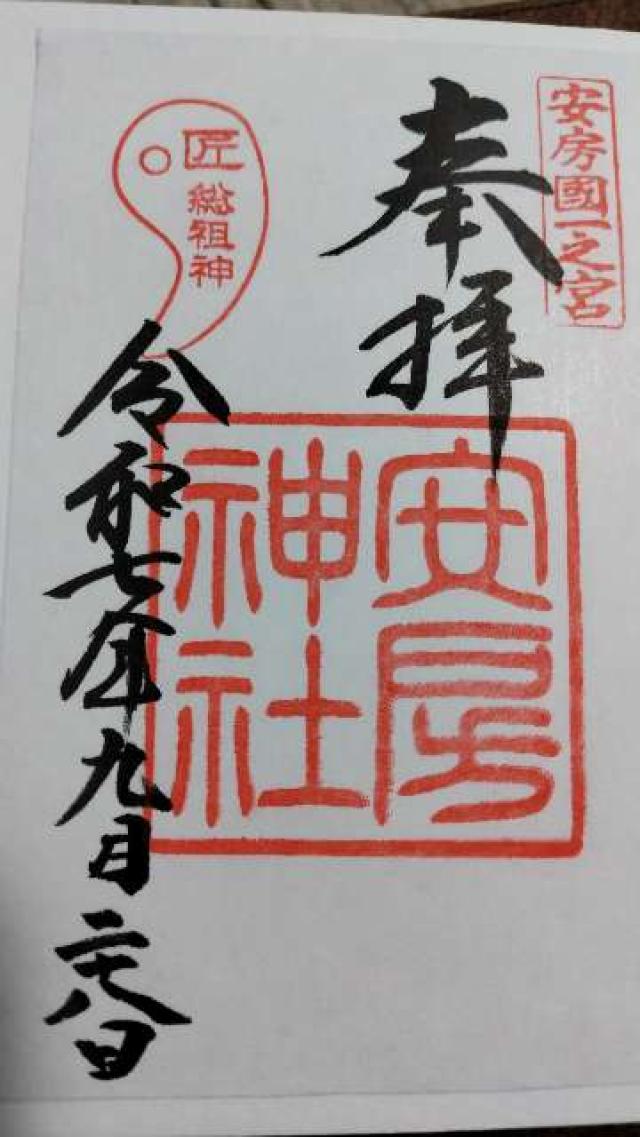 安房國一之宮
奉拝
安房
神社
匠
総祖神
令和七年九月二十八日